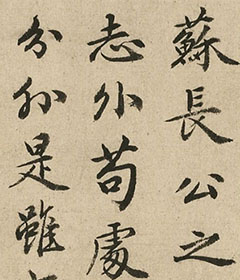 蘇長公之
志小苟處
分外是雖